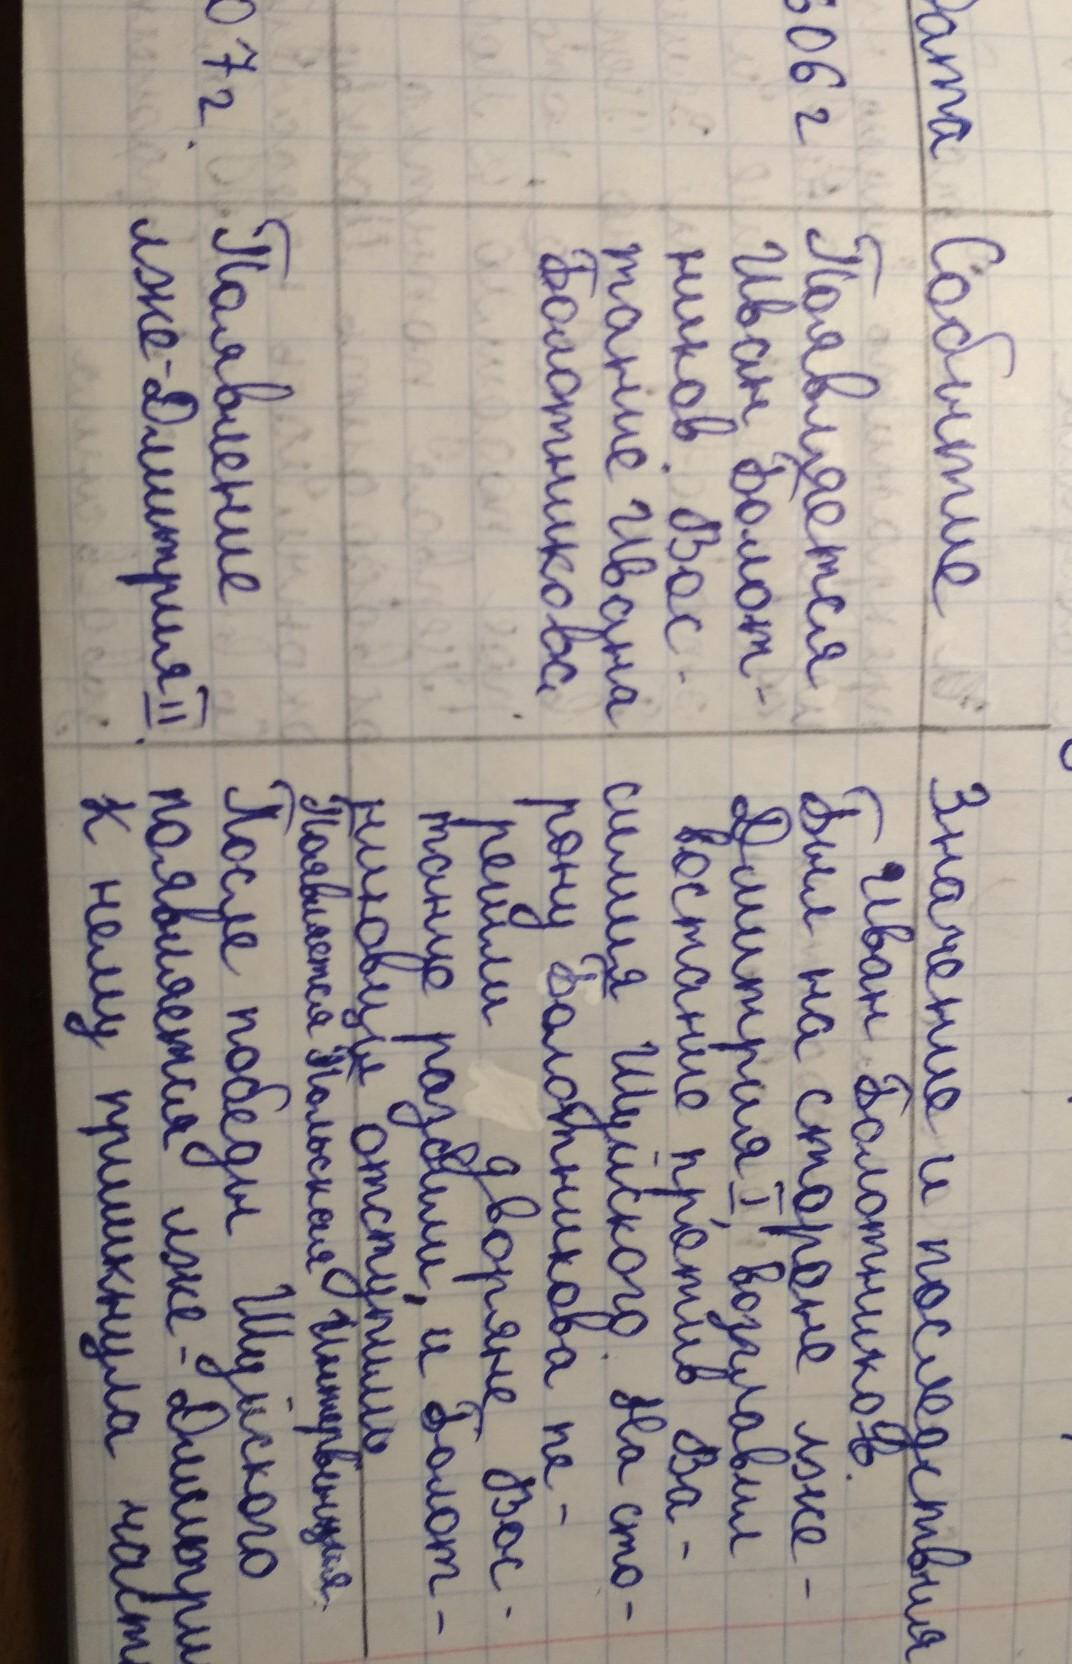 Дата Событие Значение и последствия
606 г Появляется
Иван Болот-
ников. Вос-
тание Ивана
Болотникова
Иван Болотников.
Был на стороне лже-
Дмитрия I, возглавил
востание против Ва-
силия Шуйского. На сто-
рону Болотникова пе-
решли дворяне. Вос-
тание разбили, и Болот-
никовцы отступили
Появляется Польская Интервенция.
07 г. Появление
лже-Дмитрия II.
После победы Шуйского
появляется лже-Дмитри
К нему примкнула част